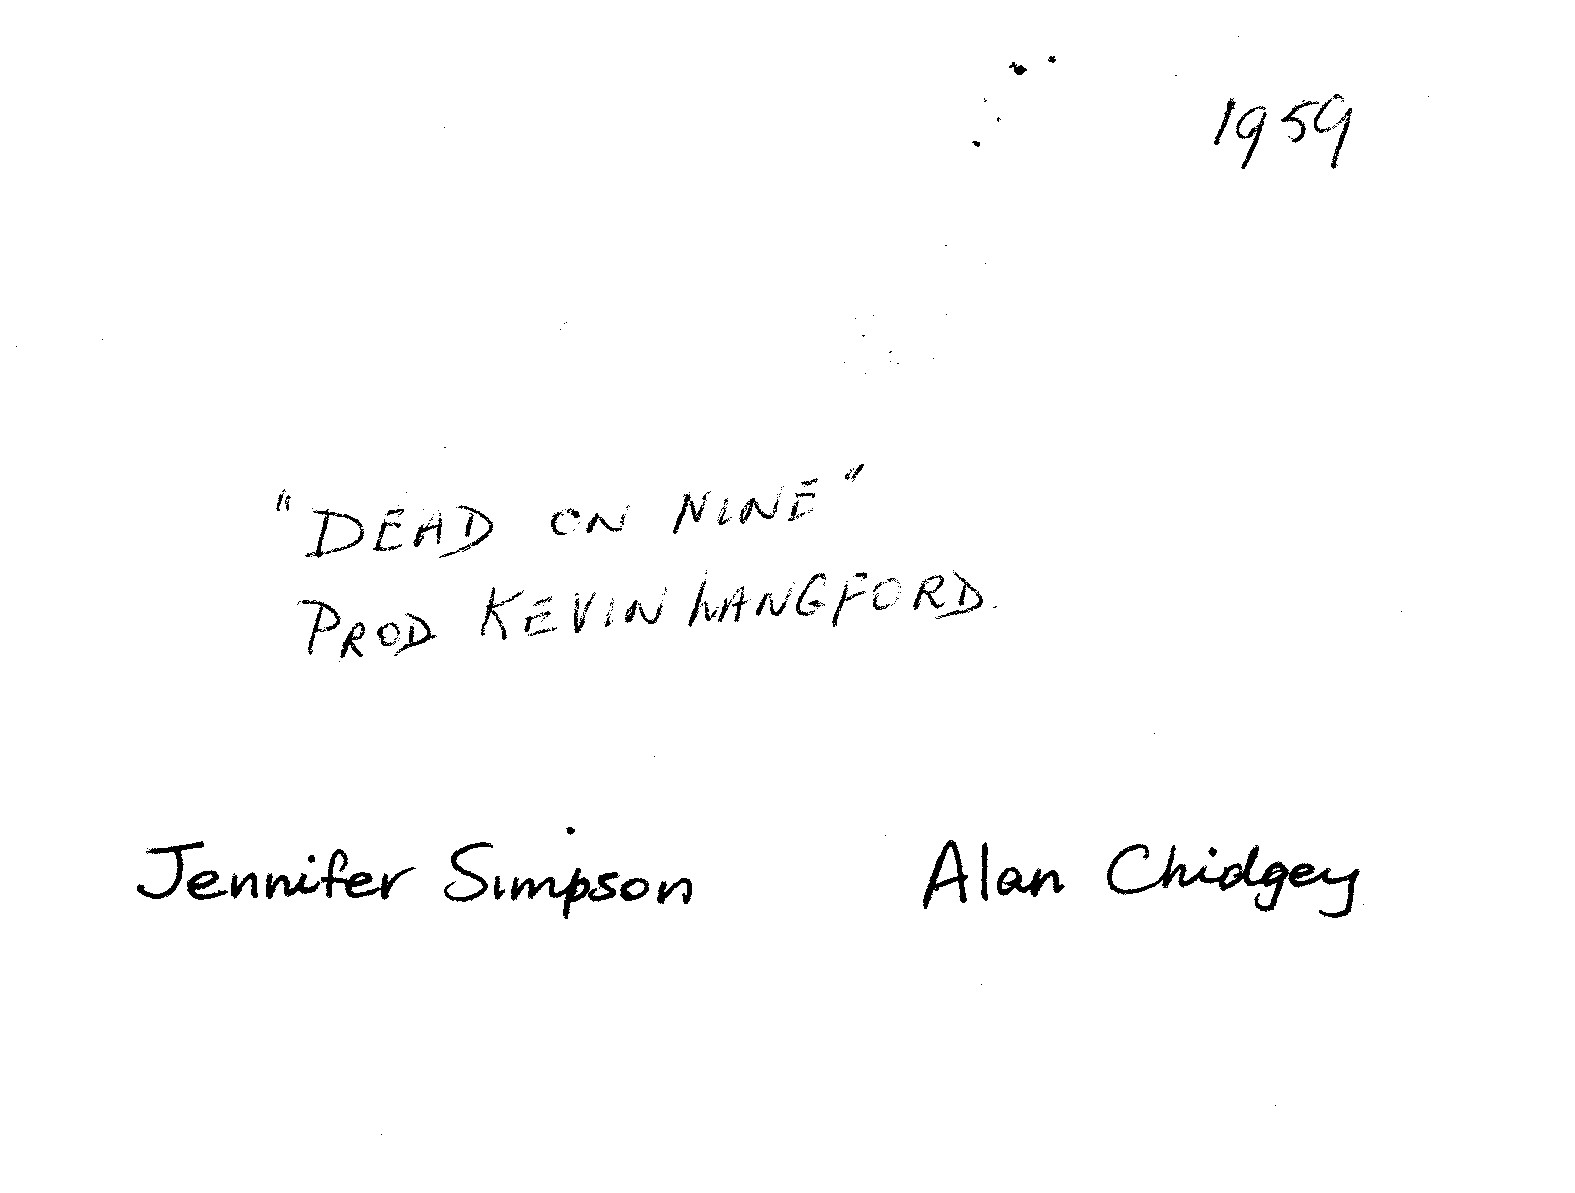 1959
"DEAD ON NINE"
PROD KEVIN LANGFORD.
Jennifer Simpson Alan Chidgey